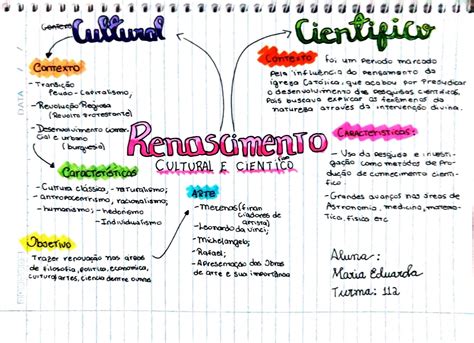 Cultural
Científico
CONTEXTO
- Transição
Feudo-Capitalismo;
- Revolução Religiosa
(Revolta protestante)
- Desenvolvimento Comer
cial e urbano
(burguesia)
Características
- Cultura clássica, naturalismo;
- antropocentrismo, racionalismo;
- humanismo; - hedonismo
- Individualismo
Objetivo
Trazer renovação nas áreas
de filosofia, política, econômica,
cultura/artes, ciência dentre outras
Renascimento
CULTURAL E CIENTÍFICO
ARTE
- Mecenas (financiadores de
artistas)
- Leonardo da Vinci;
- Michelangelo;
- Rafael;
- Apresentação das Obras
de arte e sua importância
CONTEXTO
Foi um período marcado
pela influência do pensamento da
igreja Católica, que acabou por prejudicar
o desenvolvimento das pesquisas científicas,
Pois buscava explicar os fenômenos da
natureza através da intervenção divina.
CARACTERÍSTICAS:
- Uso da pesquisa e investi-
gação como métodos de Pro-
dução de conhecimento cientí-
fico.
- Grandes avanços nas áreas de
Astronomia, medicina, matemá-
tica, física etc
Aluna:
Maria Eduarda
Turma: 112